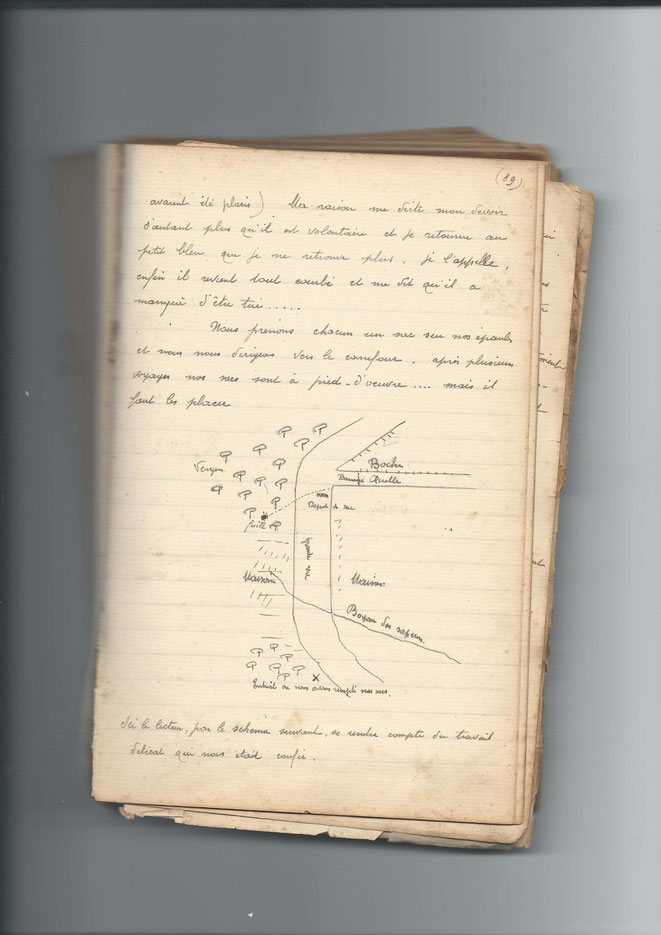 (89)
avaient été placés) Ma raison me dicte mon devoir
d'autant plus qu'il est volontaire et je retourne au
petit bleu que je ne retrouve plus. je l'appelle,
enfin il revient tout courbé et me dit qu'il a
manqué d'être tué.....
Nous prenons chacun un sac sur nos épaules
et nous nous dirigeons vers le carrefour, après plusieurs
voyages nos sacs sont à pied-d'oeuvre.... mais il
faut les placer
Boche
Verger
Ruelle
Dépôt de sac
grande rue
Maison
Maison
Boyau des sapeurs.
Endroit où nous avons rempli nos sacs.
ici le lecteur, par le schema suivant, se rendre compte du travail
délicat qui nous était confié.